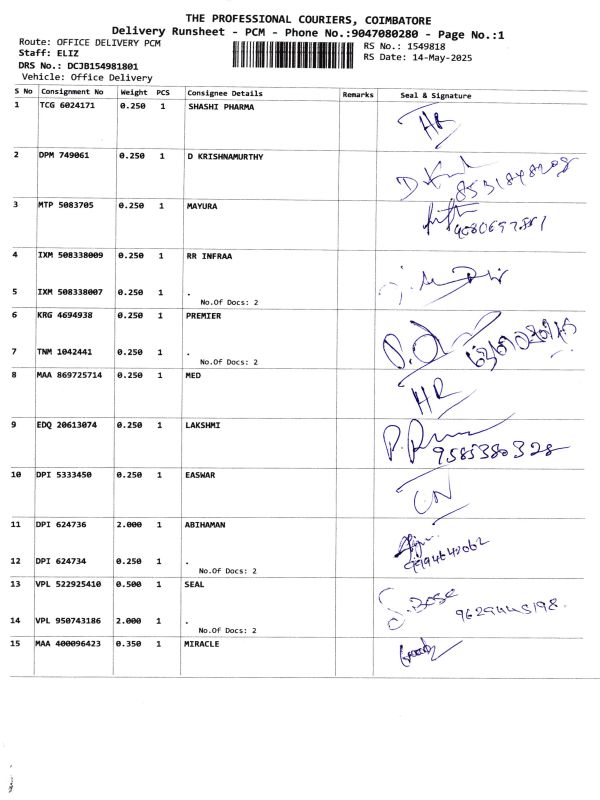 THE PROFESSIONAL COURIERS, COIMBATORE
Delivery Runsheet - PCM - Phone No.:9047080280 - Page No.:1
Route: OFFICE DELIVERY PCM
Staff: ELIZ
DRS No.: DCJB154981801
Vehicle: Office Delivery
RS No.: 1549818
RS Date: 14-May-2025
S No Consignment No Weight PCS Consignee Details Remarks Seal & Signature
1 TCG 6024171 0.250 1 SHASHI PHARMA HR
2 DPM 749061 0.250 1 D KRISHNAMURTHY
3 MTP 5083705 0.250 1 MAYURA
4 IXM 508338009 0.250 1 RR INFRAA
5 IXM 508338007 0.250 1 .
No.Of Docs: 2
6 KRG 4694938 0.250 1 PREMIER
7 TNM 1042441 0.250 1 .
No.Of Docs: 2
8 MAA 869725714 0.250 1 MED HR
9 EDQ 20613074 0.250 1 LAKSHMI
9585380328
10 DPI 5333450 0.250 1 EASWAR CN
11 DPI 624736 2.000 1 ABIHAMAN
12 DPI 624734 0.250 1 .
No.Of Docs: 2
13 VPL 522925410 0.500 1 SEAL S.BOSE
9629445198.
14 VPL 950743186 2.000 1 .
No.Of Docs: 2
15 MAA 400096423 0.350 1 MIRACLE